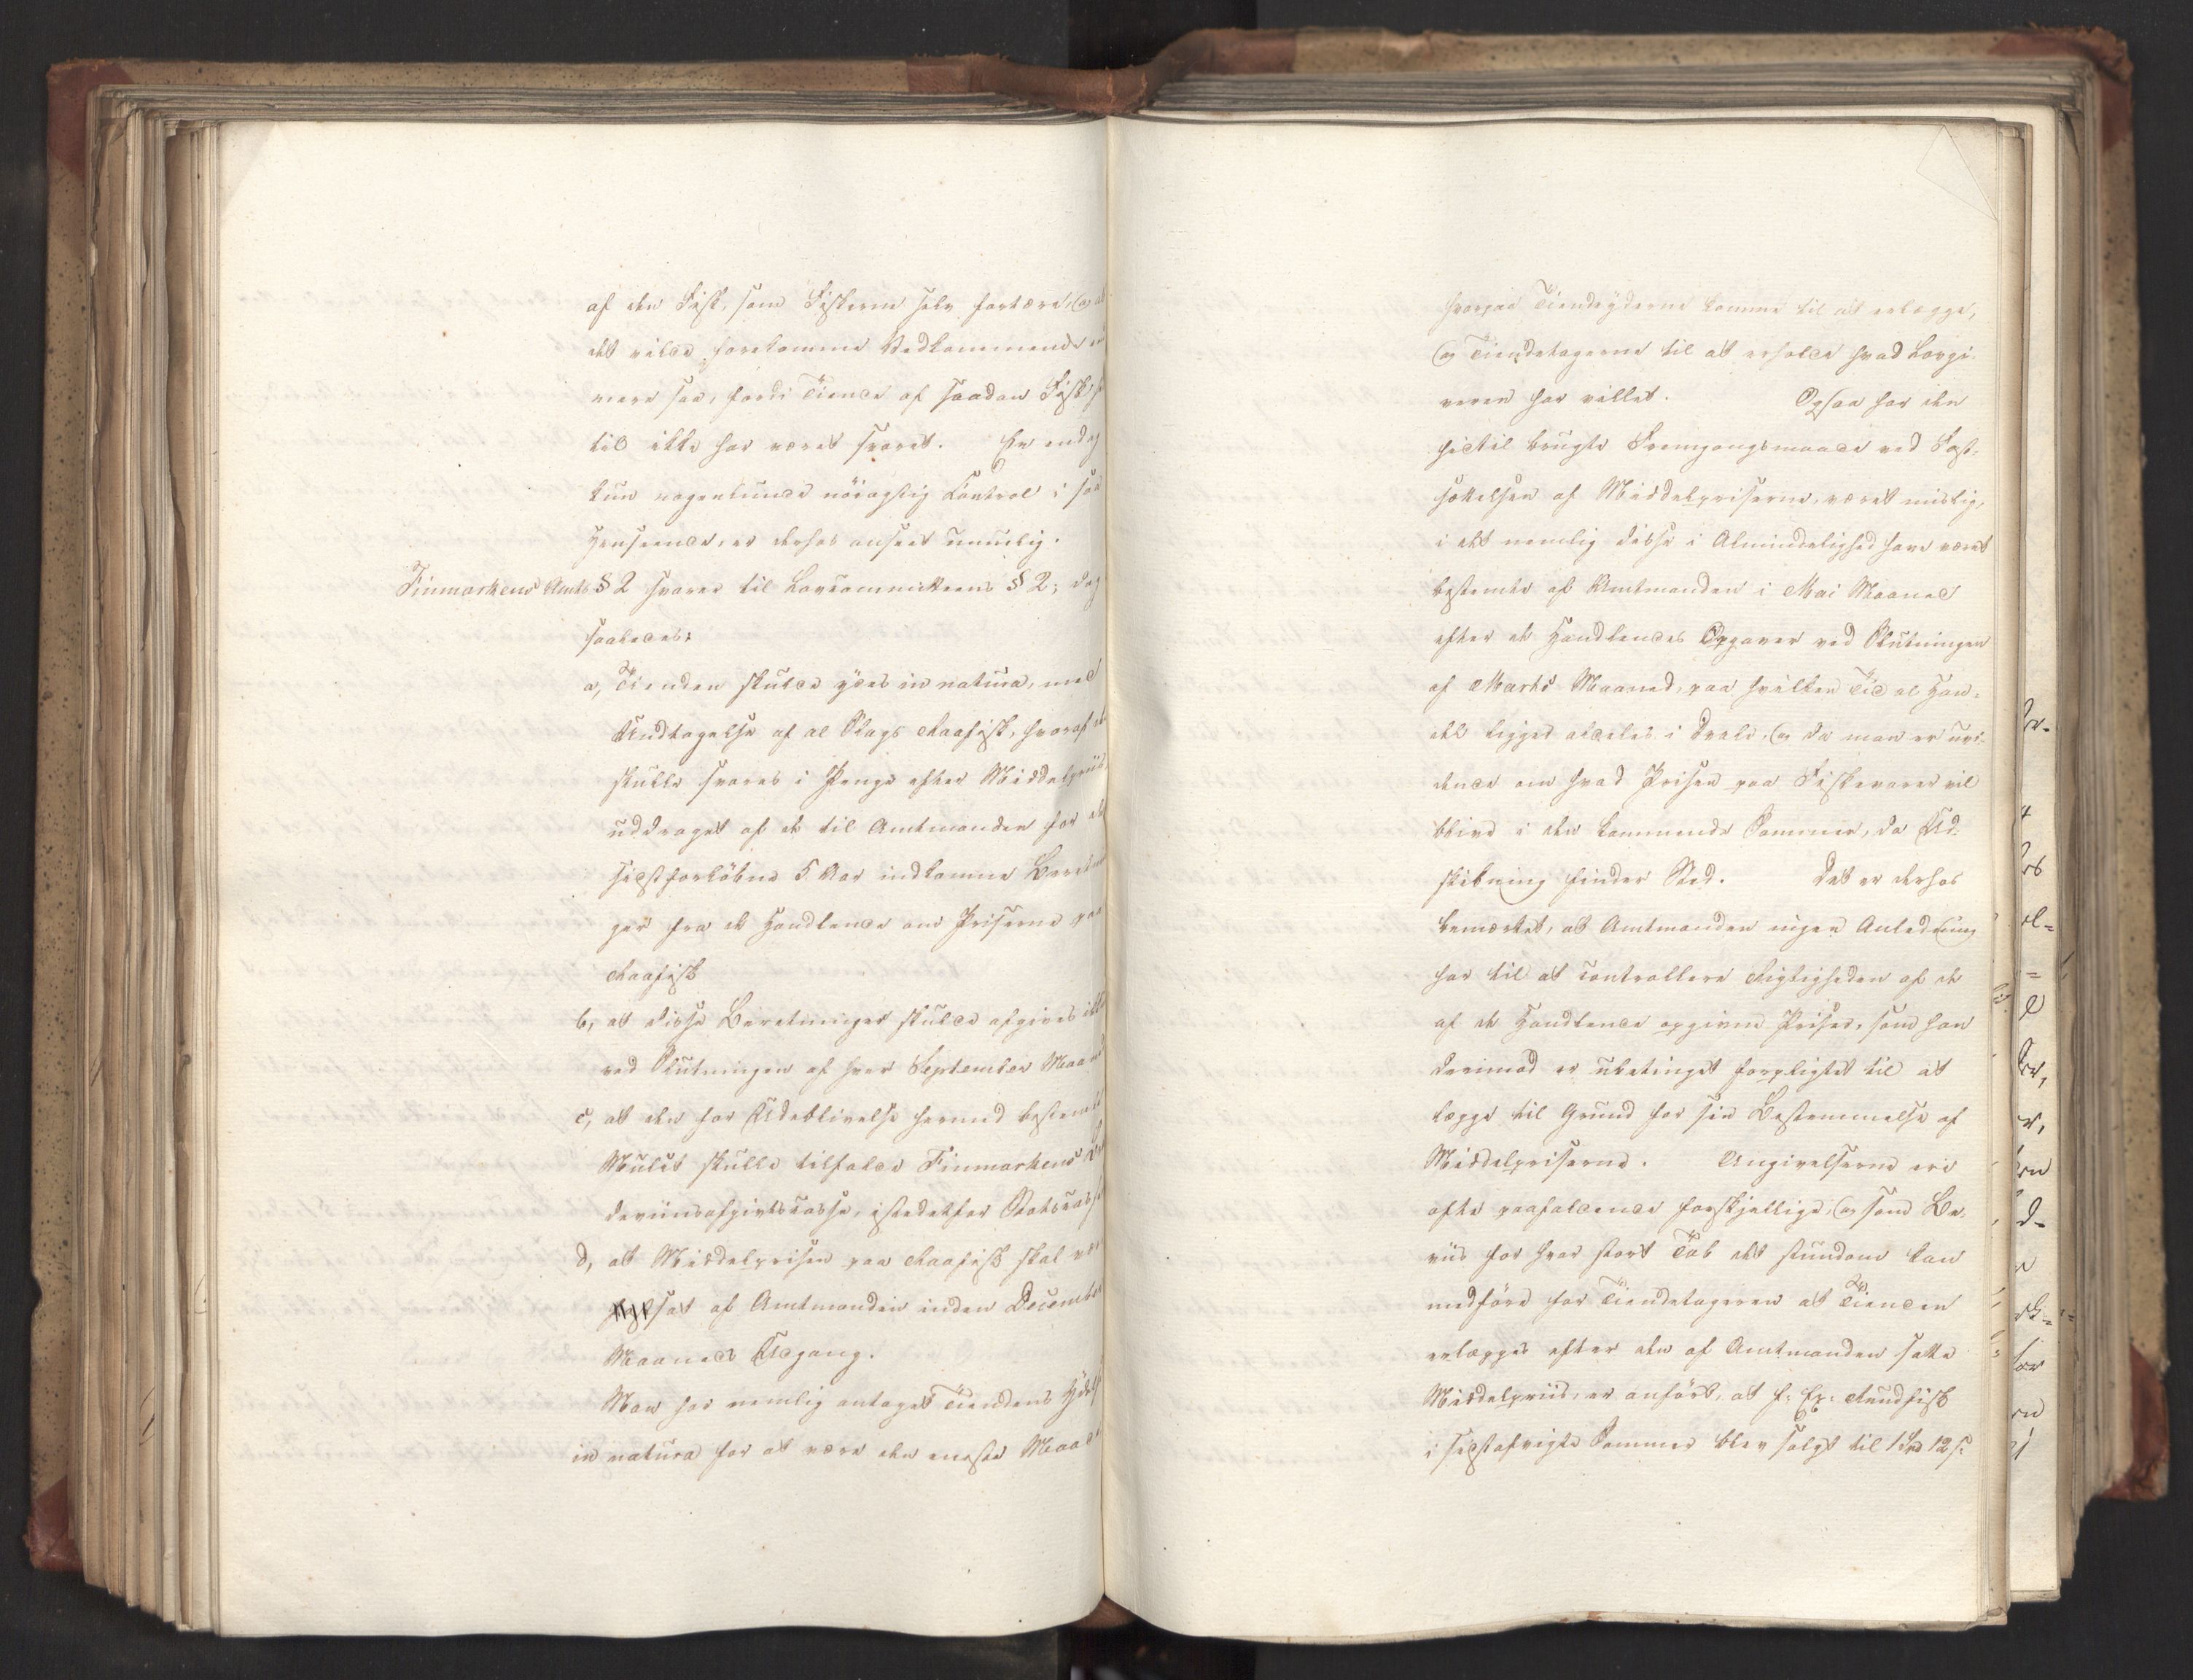 af den Fisk, som Fiskerne selv fortære, og at
det vilde forekomme Vedkommende
mere saa, fordi Tiende af saadan Fisk
til ikke har været svaret. En endog
kun nogenlunde nöiagtig Control i saa
Henseende, er derhos anseet umulig.
Finmarkens Amts § 2 svarer til Lovcommitteens § 2; dog
saaledes:
a, Tienden skulde ydes in natura, med
Undtagelse af al Slags Raafisk, hvoraf
skulle svares i Penge efter Middelpriis,
uddraget af de til Amtmanden for de
sidstforløbne 5 Aar indkomne Beretnin
ger fra de Handlende om Priserne paa
Raafisk
b, at disse Beretninger skulde afgives
ved Slutningen af hver September Maaned
c, at den for Udeblivelse hermed bestemte
Mulct skulle tilfalde Finmarkens
deviinsafgivtscasse, istedetfor Statscassen
d, at Middelprisen paa Raafisk skal være
sat af Amtmanden inden December
Maaneds Udgang.
Man har nemlig antaget Tiendens Ydelse
in natura for at være den eneste Maade
hvorpaa Tiendeyderne komme til at erlægge,
og Tiendetagerne til at erholde hvad Lovgi-
veren har villet. Ogsaa har den
hidtil brugte Fremgangsmaade ved Fast-
sættelsen af Middelpriserne, været mislig,
i det nemlig disse i Almindelighed have været
bestemte af Amtmanden i Mai Maaned
efter de Handlendes Opgaver ved Slutningen
af Marts Maaned, paa hvilken Tid al Han-
del ligger aldeles i Dvale, og da man er uvi-
dende om hvad Prisen paa Fiskevarer vil
blive i den kommende Sommer, da Ud-
skibning finder Sted. Det er derhos
bemærket, at Amtmanden ingen Anledning
har til at controllere Rigtigheden af de
af de Handlende opgivne Priser, som han
derimod er ubetinget forpligtet til at
lægge til Grund for sin Bestemmelse af
Middelpriserne. Angivelserne ere
ofte paafaldende forskjellige, og som Be-
viis for hvor stort Tab det stundom kan
medföre for Tiendetageren at Tienden
erlægges efter den af Amtmanden satte
Middelpriis, er anfört, at f: Ex: Rundfisk
i sidstafvigte Sommer blev solgt til 1 Spd 12 s: